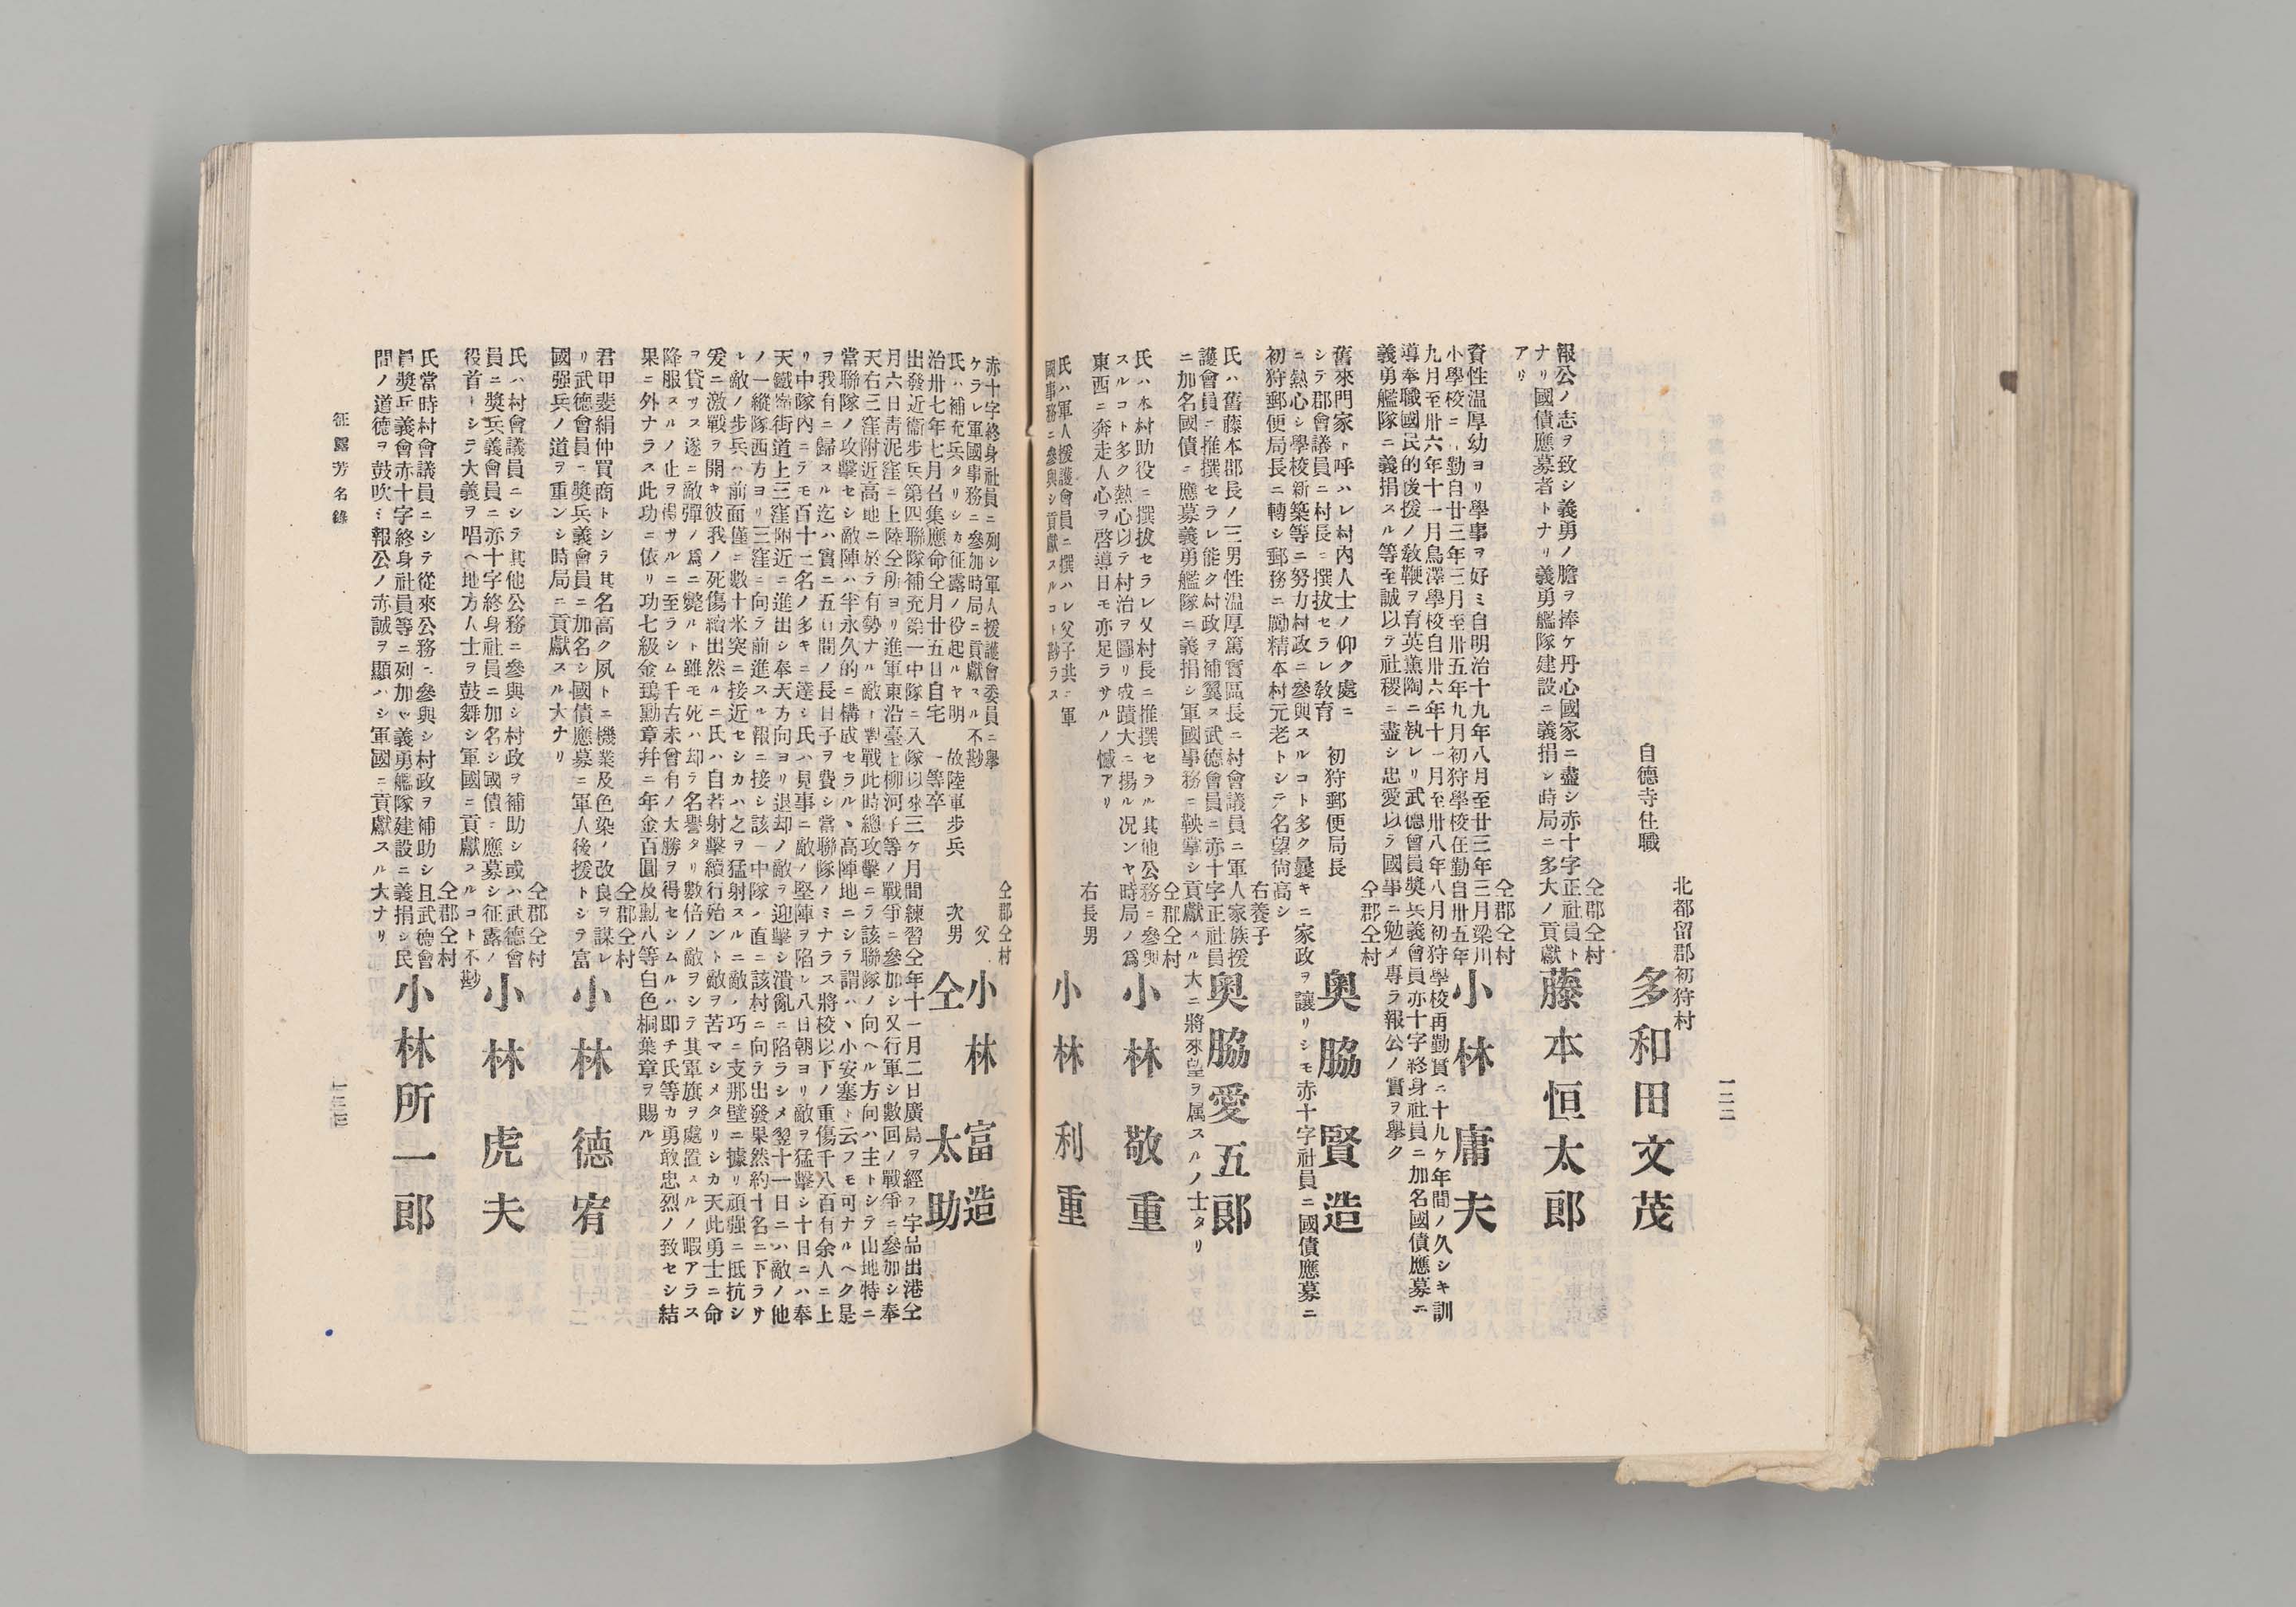 一三二
北都留郡初狩村
自德寺住職
多和田文茂
仝郡仝村
藤本恒太郎
報公ノ志ヲ致シ義勇ノ膽ヲ捧ケ丹心國家ニ盡シ赤十字正社員ト
ナリ國債應募者トナリ義勇艦隊建設ニ義捐シ時局ニ多大ノ貢獻
アリ
仝郡仝村
小林庸夫
資性温厚幼ヨリ學事ヲ好ミ自明治十九年八月至廿三年三月梁川
小學校ニ勤自廿三年三月至卅五年九月初狩學校在勤自卅五年
九月至卅六年十一月鳥澤學校自卅六年十一月至卅八年八月初狩學校再勤實ニ十九ケ年間ノ久シキ訓
導奉職國民的後援ノ敎鞭ヲ育英薫陶ニ執レリ武德會員奬兵義會員亦十字終身社員ニ加名國債應募ニ
義勇艦隊ニ義捐スル等至誠以テ社稷ニ盡シ忠愛以テ國事ニ勉メ專ラ報公ノ實ヲ擧ク
仝郡仝村
初狩郵便局長
奥脇賢造
舊來門家ト呼ハレ村内人士ノ仰ク處ニ
シテ郡會議員ニ村長ニ撰拔セラレ敎育
ニ熱心シ學校新築等ニ努力村政ニ參與スルコト多ク曩キニ家政ヲ讓リシモ赤十字社員ニ國債應募ニ
初狩郵便局長ニ轉シ郵務ニ勵精本村元老トシテ名望尙高シ
右養子
奥脇愛五郎
氏ハ舊藤本郡長ノ三男性温厚篤實區長ニ村會議員ニ軍人家族援
護會員ニ推撰セラレ能ク村政ヲ補翼ス武德會員ニ赤十字正社員
ニ加名國債ニ應募義勇艦隊ニ義捐シ軍國事務ニ鞅掌シ貢獻スル大ニ將來望ヲ属スルノ士タリ
仝郡仝村
小林敬重
氏ハ本村助役ニ撰拔セラレ又村長ニ推撰セラル其他公務ニ參與
スルコト多ク熱心以テ村治ヲ圖リ成蹟大ニ揚ル况ンヤ時局ノ爲
東西ニ奔走人心ヲ啓導日モ亦足ラサルノ憾アリ
右長男
小林利重
氏ハ軍人援護會員ニ撰ハレ父子共ニ軍
國事務ニ參與シ貢獻スルコト尠ラス
仝郡仝村
父 小林富造
赤十字終身社員ニ列シ軍人援護會委員ニ擧
ケラレ軍國事務ニ參加時局ニ貢獻スル不尠
故陸軍步兵一等卒 次男 仝太助
氏ハ補充兵タリシカ征露ノ役起ルヤ明
治卅七年七月召集應命仝月廿五日自宅
出發近衞步兵第四聯隊補充第一中隊ニ入隊以來三ケ月間練習仝年十一月二日廣島ヲ經テ宇品出港仝
月六日靑泥窪ニ上陸仝所ヨリ進軍東沿臺上柳河子等ノ戰爭ニ參加シ又行軍シ數回ノ戰爭ニ參加シ奉
天右三窪附近高地ニ於テ有勢ナル敵ト對戰此時總攻擊ニテ該聯隊ノ向ヘル方向ハ主トシテ山地特ニ
當聯隊ノ攻擊セシ敵陣ハ半永久的ニ構成セラル、高陣地ニシテ謂ハ、小安塞ト云フモ可ナルヘク是
ヲ我有ニ歸スル迄ハ實ニ五日間ノ長日子ヲ費シ當聯隊ノミナラス將校以下ノ重傷千八百有余人ニ上
リ中隊内ニテモ百十二名ノ多キニ達シ氏ハ見事ニ敵ノ堅陣ヲ陷レ八日朝ヨリ敵ヲ猛擊シ十日ニハ奉
天鐵嶺街道上三窪附近ニ進出シ奉天方向ヨリ退却ノ敵ヲ迎擊シ潰亂ニ陷ラシメ翌十一日ニハ敵ノ他
ノ一縱隊西方ヨリ三窪ニ向テ前進スル報ニ接シ該一中隊ノ直ニ該村ニ向テ出發果然約十名ニ下ラサ
ル敵ノ步兵ハ前面僅ニ數十米突ニ接近セシカハ之ヲ猛射スルニ敵ノ巧ニ支那壁ニ據リ頑强ニ抵抗シ
爰ニ激戰ヲ開キ彼我ノ死傷續出然ルニ氏ハ自若射擊續行殆ント敵ヲ苦マシメタリシカ天此勇士ニ命
ヲ貸サス遂ニ敵彈ノ爲ニ斃ルト雖モ死ハ却テ名譽タリ數倍ノ敵ヲシテ其軍旗ヲ處置スルノ暇アラス
降服スルノ止ヲ得サルニ至ラシム千古未曾有ノ大勝ヲ得セシムルハ即チ氏等カ勇敢忠烈ノ致セシ結
果ニ外ナラス此功ニ依リ功七級金鵄勳章幷ニ年金百圓及勳八等白色桐葉章ヲ賜ル
仝郡仝村
小林德宥
君甲斐絹仲買商トシテ其名高ク夙トニ機業及色染ノ改良ヲ謀レ
リ武德會員ニ奬兵義會員ニ加名シ國債應募ニ軍人後援トシテ富
國强兵ノ道ヲ重ンシ時局ニ貢獻スル大ナリ
仝郡仝村
小林虎夫
氏ハ村會議員ニシテ其他公務ニ參與シ村政ヲ補助シ或ハ武德會
員ニ奬兵義會員ニ亦十字終身社員ニ加名シ國債ニ應募シ征露ノ
役首トシテ大義ヲ唱ヘ地方人士ヲ鼓舞シ軍國ニ貢獻スルコト不尠
仝郡仝村
小林所一郎
氏當時村會議員ニシテ從來公務ニ參與シ村政ヲ補助シ且武德會
員奬兵義會赤十字終身社員等ニ列加セ義勇艦隊建設ニ義捐シ民
間ノ道德ヲ鼓吹シ報公ノ赤誠ヲ顯ハシ軍國ニ貢獻スル大ナリ
征露芳名錄
一三三